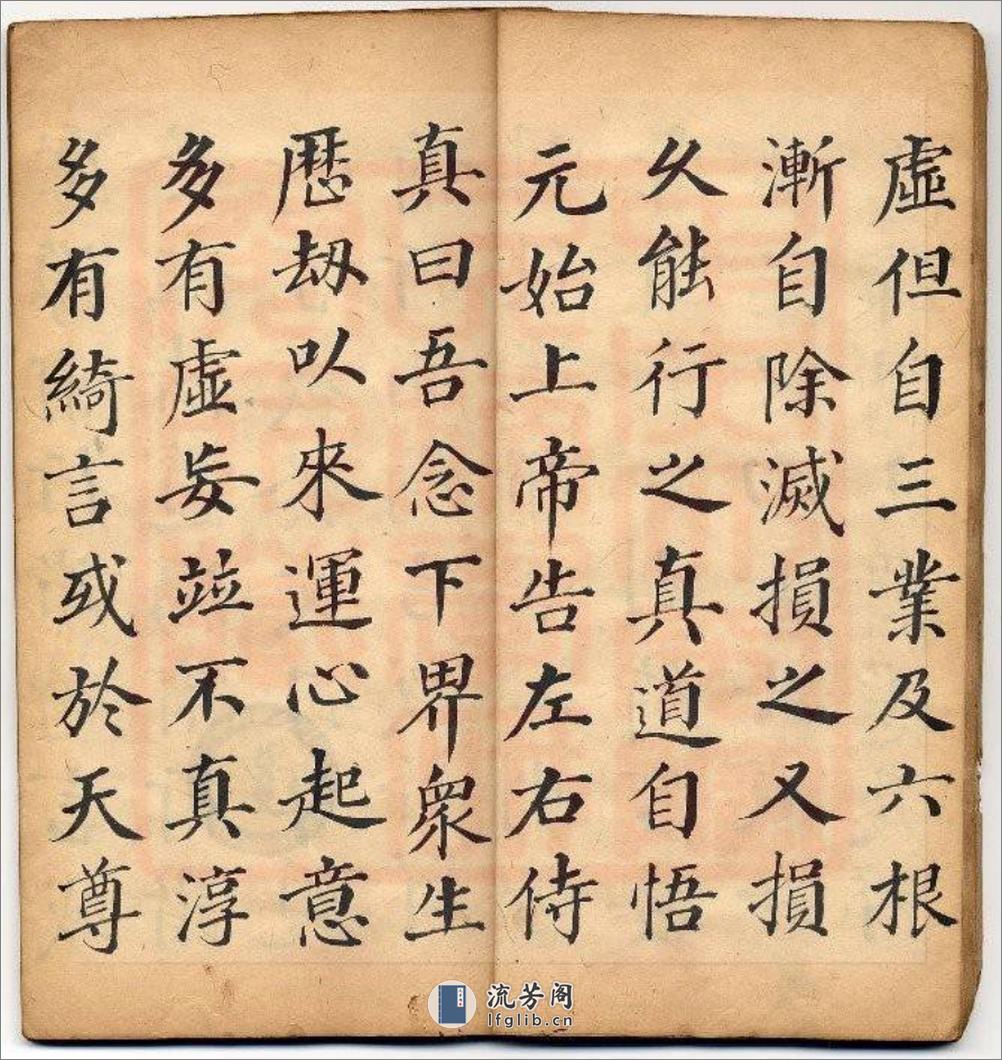 虛但自三業及六根
漸自除滅損之又損
久能行之真道自悟
元始上帝告左右侍
真曰吾念下界衆生
歷劫以來運心起意
多有虛妄並不真淳
多有綺言或於天尊
流芳阁
lfglib.cn